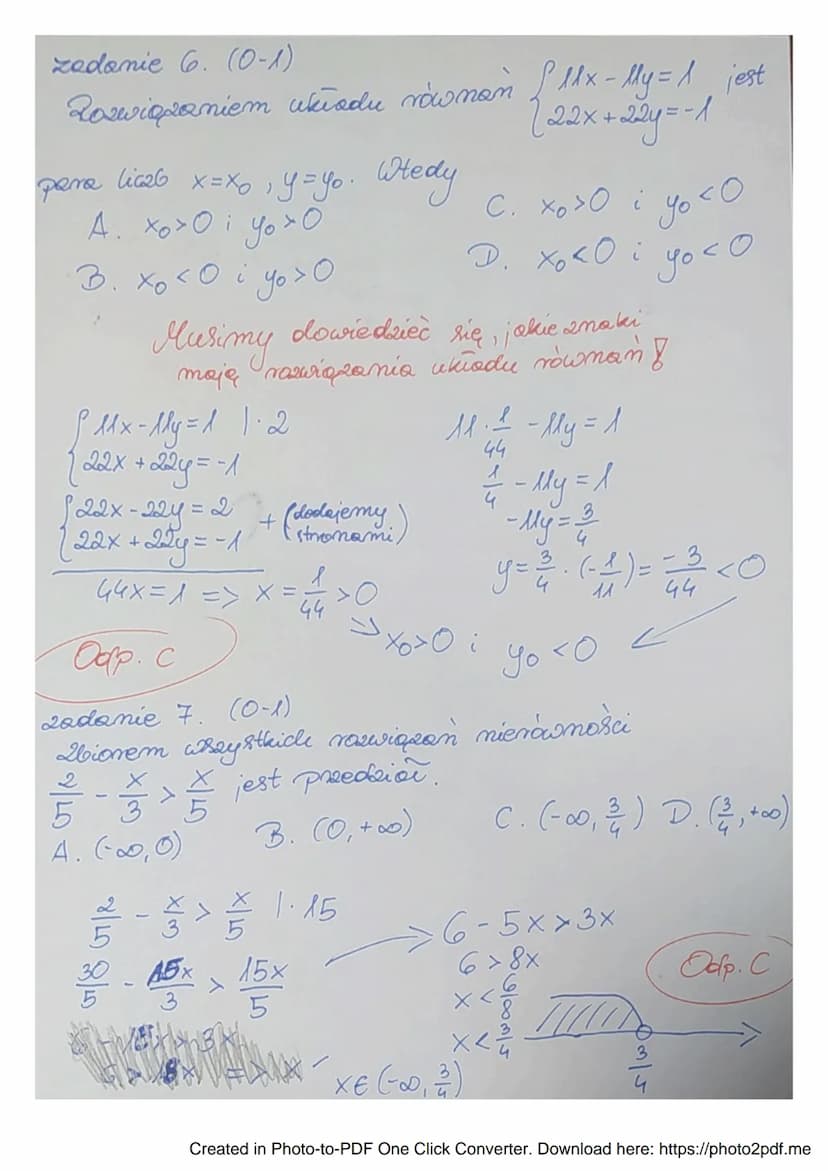 zadanie 6. (0-1)
Rozwiązaniem układu równań { 11x - 11y = 1 jest
{ 22x + 22y = -1
para liczb x = x₀, y = y₀. Wtedy
A. x₀ > 0 i y₀ > 0
C. x₀ > 0 i y₀ < 0
B. x₀ < 0 i y₀ > 0
D. x₀ < 0 i y₀ < 0
Musimy dowiedzieć się, jakie znaki
mają rozwiązania układu równań!
{ 11x - 11y = 1 | · 2
{ 22x + 22y = -1
{ 22x - 22y = 2
{ 22x + 22y = -1 + (dodajemy stronami)
44x = 1 => x = 1/44 > 0
11 · 1/44 - 11y = 1
1/4 - 11y = 1
-11y = 3/4
y = 3/4 · (-1/11) = -3/44 < 0
=> x₀ > 0 i y₀ < 0
Odp. C
zadanie 7. (0-1)
Zbiorem wszystkich rozwiązań nierówności
2/5 - x/3 > x/5 jest przedział.
A. (-∞, 0) B. (0, +∞) C. (-∞, 3/4) D. (3/4, +∞)
2/5 - x/3 > x/5 | · 15
30/5 - 15x/3 > 15x/5
6 - 5x > 3x
6 > 8x
x < 6/8
x < 3/4
3/4
x ∈ (-∞, 3/4)
Odp. C
Created in Photo-to-PDF One Click Converter. Download here: https://photo2pdf.me